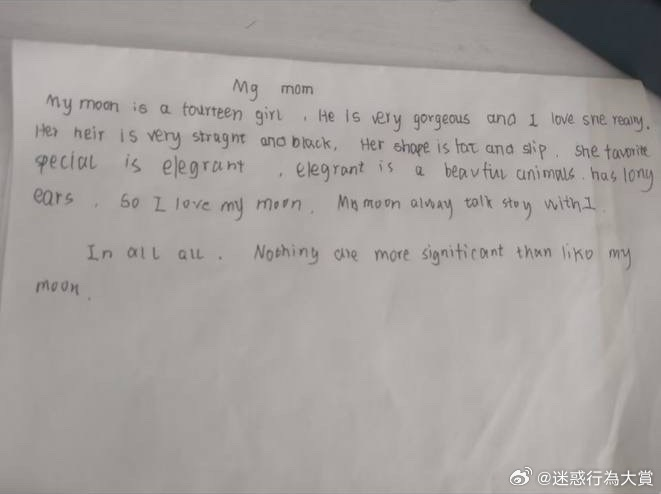 My mom
My moon is a fourteen girl . He is very gorgeous and I love she really.
Her heir is very straght and black, Her shape is fat and slip . She favorite
special is elegrant , elegrant is a beavful animals. has long
ears . So I love my moon . My moon alway talk stoy with I .
In all all . Nothing are more significant than like my
moon .
@迷惑行為大賞